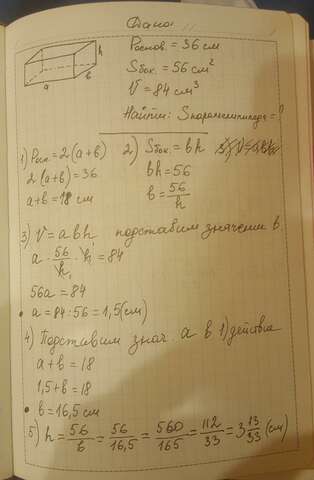 Дано:
h
a
b
Pоснов. = 36 см
Sбок. = 56 см²
V = 84 см³
Найти: Sпараллелепипеда = ?
1) Pосн = 2(a+b)
2(a+b) = 36
a+b = 18 см
2) Sбок. = bh
bh = 56
b = 56/h
3) V = abh подставим значение b
a · 56/h · h = 84
56a = 84
• a = 84 : 56 = 1,5 (см)
4) Подставим знач. a в 1) действие
a+b = 18
1,5+b = 18
• b = 16,5 см
5) h = 56/b = 56/16,5 = 560/165 = 112/33 = 3 13/33 (см)